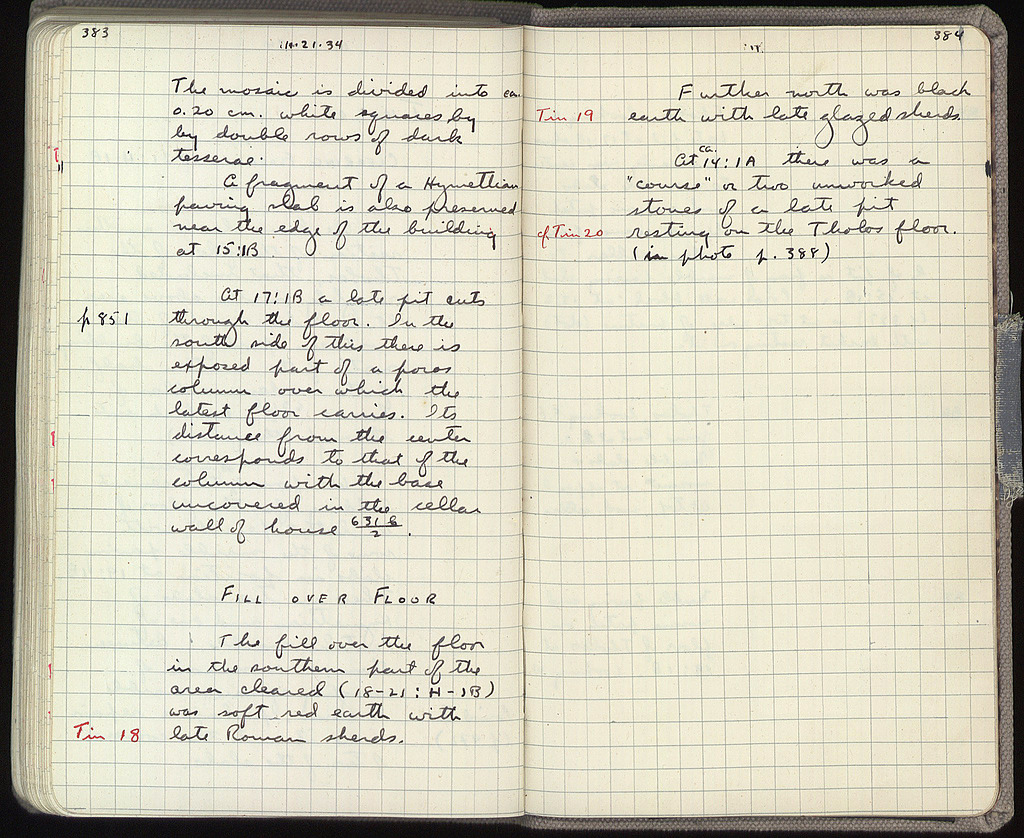 383
11·21·34
The mosaic is divided into ca.
0.20 cm. white squares by
by double rows of dark
tesserae.
A fragment of a Hymettian
paving slab is also preserved
near the edge of the building
at 15:1B
At 17:1B a late pit cuts
p 851 through the floor. In the
south side of this there is
exposed part of a poros
column over which the
latest floor carries. Its
distance from the center
corresponds to that of the
column with the base
uncovered in the cellar
wall of house 631 6/2.
FILL OVER FLOOR
The fill over the floor
in the southern part of the
area cleared (18-21:H-1B)
was soft red earth with
Tin 18 late Roman sherds.
384
"
Further north was black
Tin 19 earth with late glazed sherds.
At ca. 14:1A there was a
"course" or two unworked
stones of a late pit
cf. Tin 20 resting on the Tholos floor.
(in photo p. 388)